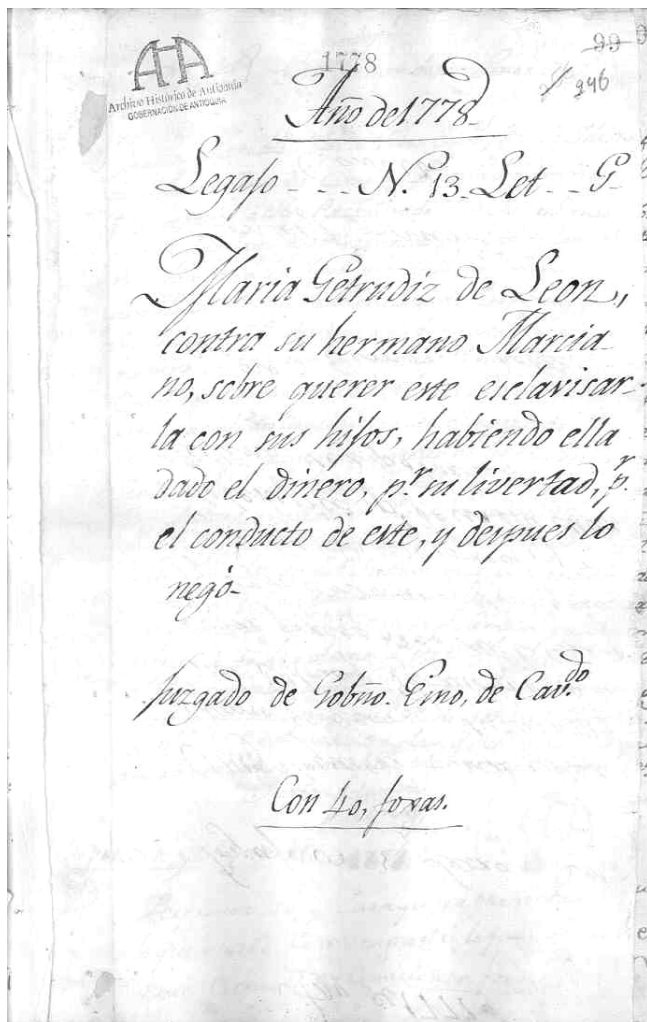 1778
99
946
Archivo Histórico de Antioquia
GOBERNACIÓN DE ANTIOQUIA
Año de 1778
Legajo - - - N. 13 - Let - - G -
Maria Getrudiz de Leon,
contra su hermano Marcia
no, sobre querer este esclavisar-
la con sus hijos, habiendo ella
dado el dinero, pr. su livertad, pr.
el conducto de este, y despues lo
negó-
Juzgado de Gobño. Eṁo, de Cavdo.
Con 40, foxas.